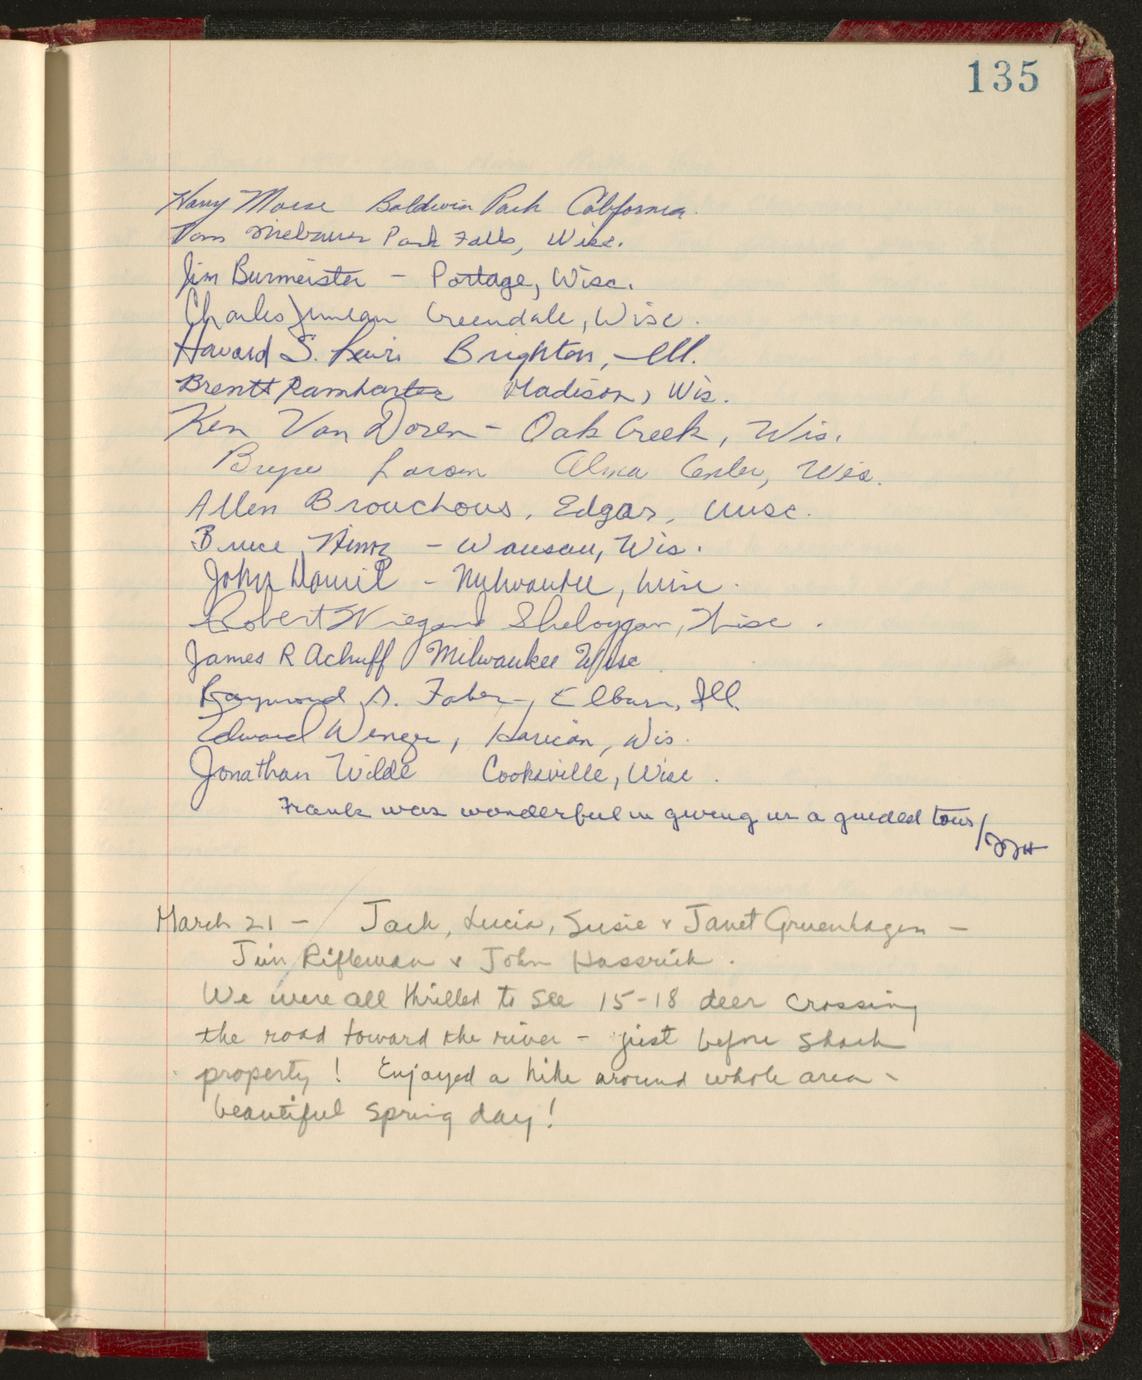 135
Harry Morse Baldwin Park California.
Tom Park Falls, Wisc.
Jim Burmeister - Portage, Wisc.
Charles Greendale, Wisc.
Havard S. Lewis Brighton, Ill.
Brentt Ramharter Madison, Wis.
Ken Van Doren - Oak Creek, Wis.
Larson Alma Center, Wis.
Allen Brouchous, Edgar, Wisc.
Bruce - Wausau, Wis.
John - Mylwaukee, Wisc.
Robert Wiegand Sheboygan, Wisc.
James R Achuff Milwaukee Wisc
Raymond S. Faber, Elburn, Ill.
Edward Wenger, Horicon, Wis.
Jonathan Wilde Cooksville, Wisc.
Frank was wonderful in giving us a guided tour/
JJH
March 21 - Jack, Lucia, Susie & Janet Gruenhagen -
Jim Rifleman & John Hassrick.
We were all thrilled to see 15-18 deer crossing
the road toward the river - just before Shack
property! Enjoyed a hike around whole area -
beautiful spring day!